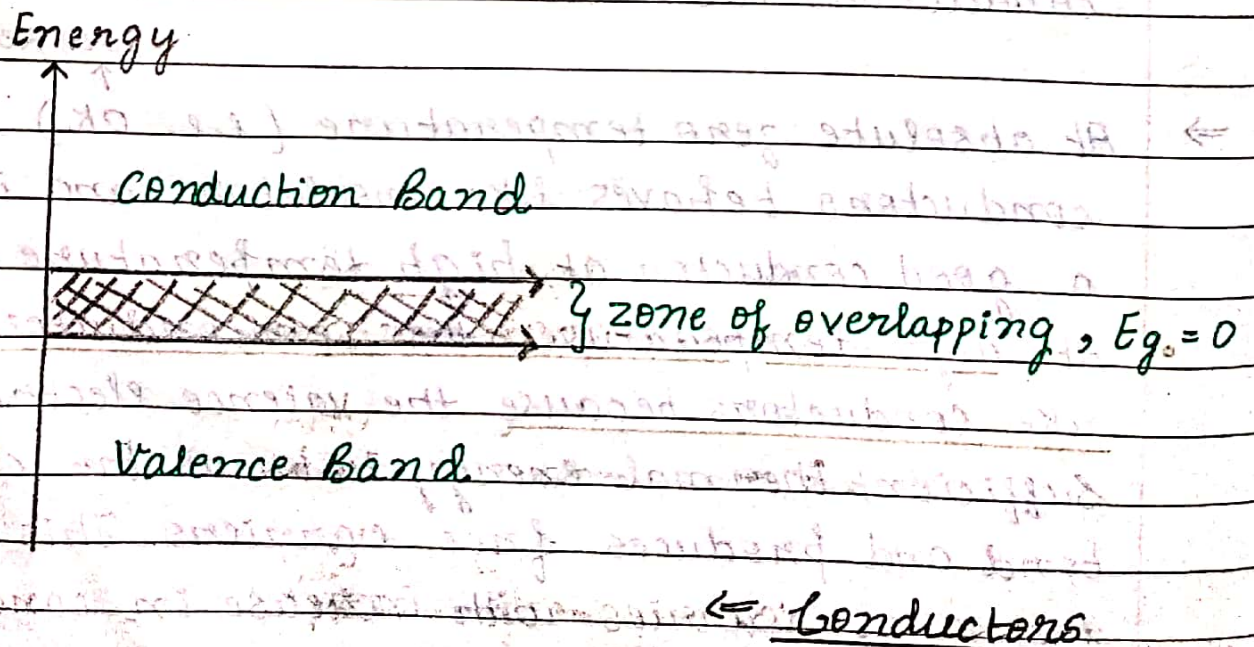 Energy
Conduction Band
} zone of overlapping, Eg. = 0
Valence Band
⇐ Conductors